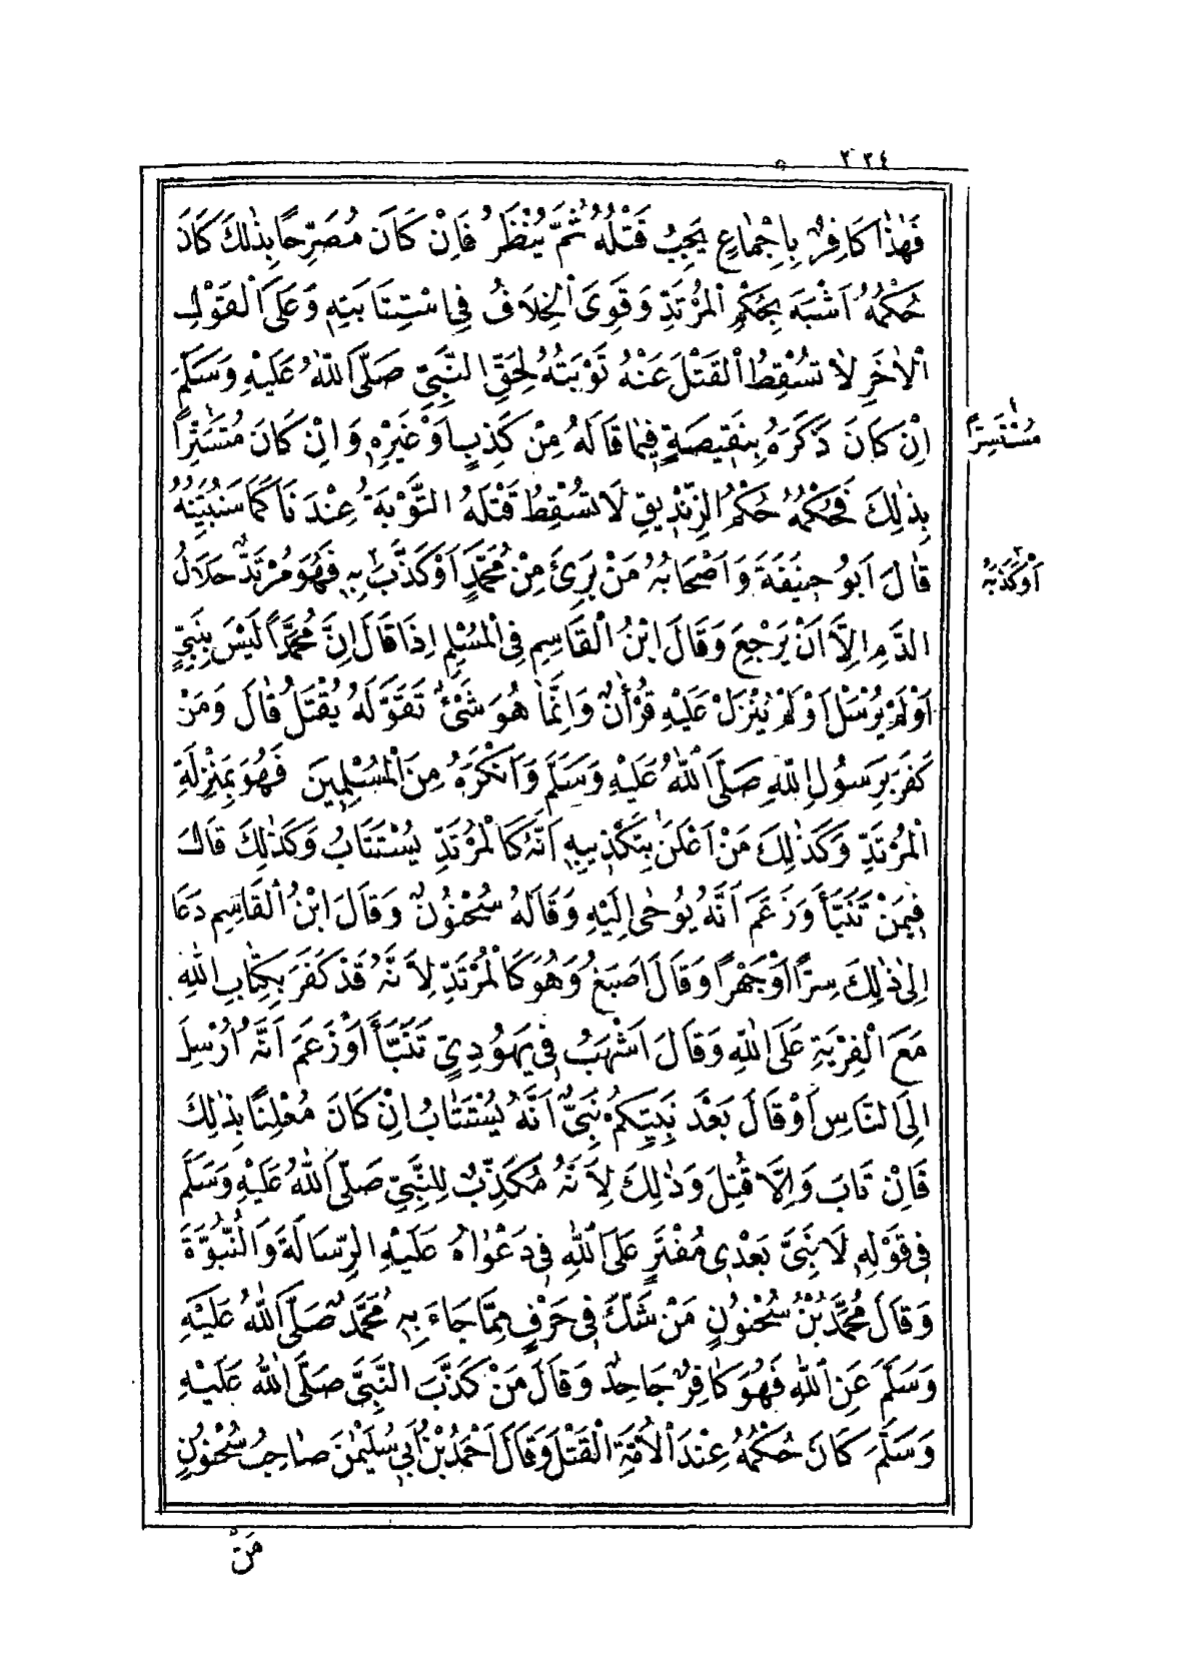 ٢٣٤
فَهٰذَا كَافِرٌ بِاِجْمَاعٍ يَجِبُ قَتْلُهُ ثُمَّ يُنْظَرُ فَاِنْ كَانَ مُصَرِّحًا بِذٰلِكَ كَانَ
حُكْمُهُ اَشْبَهَ بِحُكْمِ الْمُرْتَدِّ وَقَوِىَ الْخِلَافُ فِى اسْتِتَابَتِهِ وَعَلَى الْقَوْلِ
الْاٰخَرِ لَا تُسْقِطُ الْقَتْلَ عَنْهُ تَوْبَتُهُ لِحَقِّ النَّبِىِّ صَلَّى اللّٰهُ عَلَيْهِ وَسَلَّمَ
اِنْ كَانَ ذَكَرَهُ بِنَقِيصَةٍ فِيمَا قَالَهُ مِنْ كَذِبٍ اَوْ غَيْرِهِ وَاِنْ كَانَ مُتَسَتِّرًا
مُسْتَسِرًّا
بِذٰلِكَ فَحُكْمُهُ حُكْمُ الزِّنْدِيقِ لَا تُسْقِطُ قَتْلَهُ التَّوْبَةُ عِنْدَنَا كَمَا سَنُبَيِّنُهُ
قَالَ اَبُو حَنِيفَةَ وَاَصْحَابُهُ مَنْ بَرِئَ مِنْ مُحَمَّدٍ اَوْ كَذَّبَ بِهِ فَهُوَ مُرْتَدٌّ حَلَالُ
اَوْ كَذَّبَهُ
الدَّمِ اِلَّا اَنْ يَرْجِعَ وَقَالَ ابْنُ الْقَاسِمِ فِى الْمُسْلِمِ اِذَا قَالَ اِنَّ مُحَمَّدًا لَيْسَ بِنَبِىٍّ
اَوْ لَمْ يُرْسَلْ اَوْ لَمْ يُنْزَلْ عَلَيْهِ قُرْاٰنٌ وَاِنَّمَا هُوَ شَىْءٌ تَقَوَّلَهُ يُقْتَلُ قَالَ وَمَنْ
كَفَرَ بِرَسُولِ اللّٰهِ صَلَّى اللّٰهُ عَلَيْهِ وَسَلَّمَ وَاَنْكَرَهُ مِنَ الْمُسْلِمِينَ فَهُوَ بِمَنْزِلَةِ
الْمُرْتَدِّ وَكَذٰلِكَ مَنْ اَعْلَنَ بِتَكْذِيبِهِ اَنَّهُ كَالْمُرْتَدِّ يُسْتَتَابُ وَكَذٰلِكَ قَالَ
فِيمَنْ تَنَبَّأَ وَزَعَمَ اَنَّهُ يُوحٰى اِلَيْهِ وَقَالَهُ سُحْنُونٌ وَقَالَ ابْنُ الْقَاسِمِ دَعَا
اِلٰى ذٰلِكَ سِرًّا اَوْ جَهْرًا وَقَالَ اَصْبَغُ وَهُوَ كَالْمُرْتَدِّ لِاَنَّهُ قَدْ كَفَرَ بِكِتَابِ اللّٰهِ
مَعَ الْفِرْيَةِ عَلَى اللّٰهِ وَقَالَ اَشْهَبُ فِى يَهُودِىٍّ تَنَبَّأَ اَوْ زَعَمَ اَنَّهُ اُرْسِلَ
اِلَى النَّاسِ اَوْ قَالَ بَعْدَ نَبِيِّكُمْ نَبِىٌّ اَنَّهُ يُسْتَتَابُ اِنْ كَانَ مُعْلِنًا بِذٰلِكَ
فَاِنْ تَابَ وَاِلَّا قُتِلَ وَذٰلِكَ لِاَنَّهُ مُكَذِّبٌ لِلنَّبِىِّ صَلَّى اللّٰهُ عَلَيْهِ وَسَلَّمَ
فِى قَوْلِهِ لَا نَبِىَّ بَعْدِى مُفْتَرٍ عَلَى اللّٰهِ فِى دَعْوَاهُ عَلَيْهِ الرِّسَالَةَ وَالنُّبُوَّةَ
وَقَالَ مُحَمَّدُ بْنُ سُحْنُونٍ مَنْ شَكَّ فِى حَرْفٍ مِمَّا جَاءَ بِهِ مُحَمَّدٌ صَلَّى اللّٰهُ عَلَيْهِ
وَسَلَّمَ عَنِ اللّٰهِ فَهُوَ كَافِرٌ جَاحِدٌ وَقَالَ مَنْ كَذَّبَ النَّبِىَّ صَلَّى اللّٰهُ عَلَيْهِ
وَسَلَّمَ كَانَ حُكْمُهُ عِنْدَ الْاُمَّةِ الْقَتْلَ وَقَالَ اَحْمَدُ بْنُ اَبِى سُلَيْمٰنَ صَاحِبُ سُحْنُونٍ
مَنْ